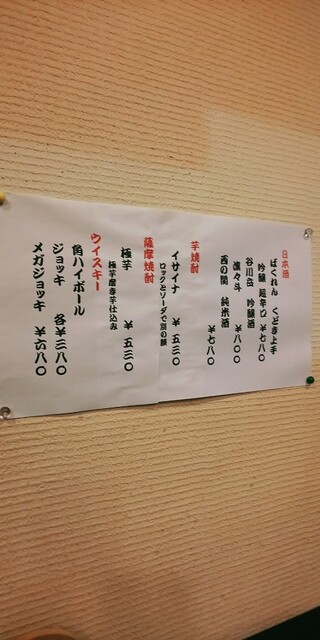 日本酒
ばくれん　くどき上手
吟醸 超辛口 ￥七八〇
谷川岳　吟醸酒
￥八〇〇
西の関　純米酒
￥七八〇
芋焼酎
イサイナ　￥五三〇
ロックとソーダで別の顔
薩摩焼酎
極芋　￥五三〇
極芋磨き芋仕込み
ウイスキー
角ハイボール
ジョッキ　各￥三八〇
メガジョッキ　￥六八〇